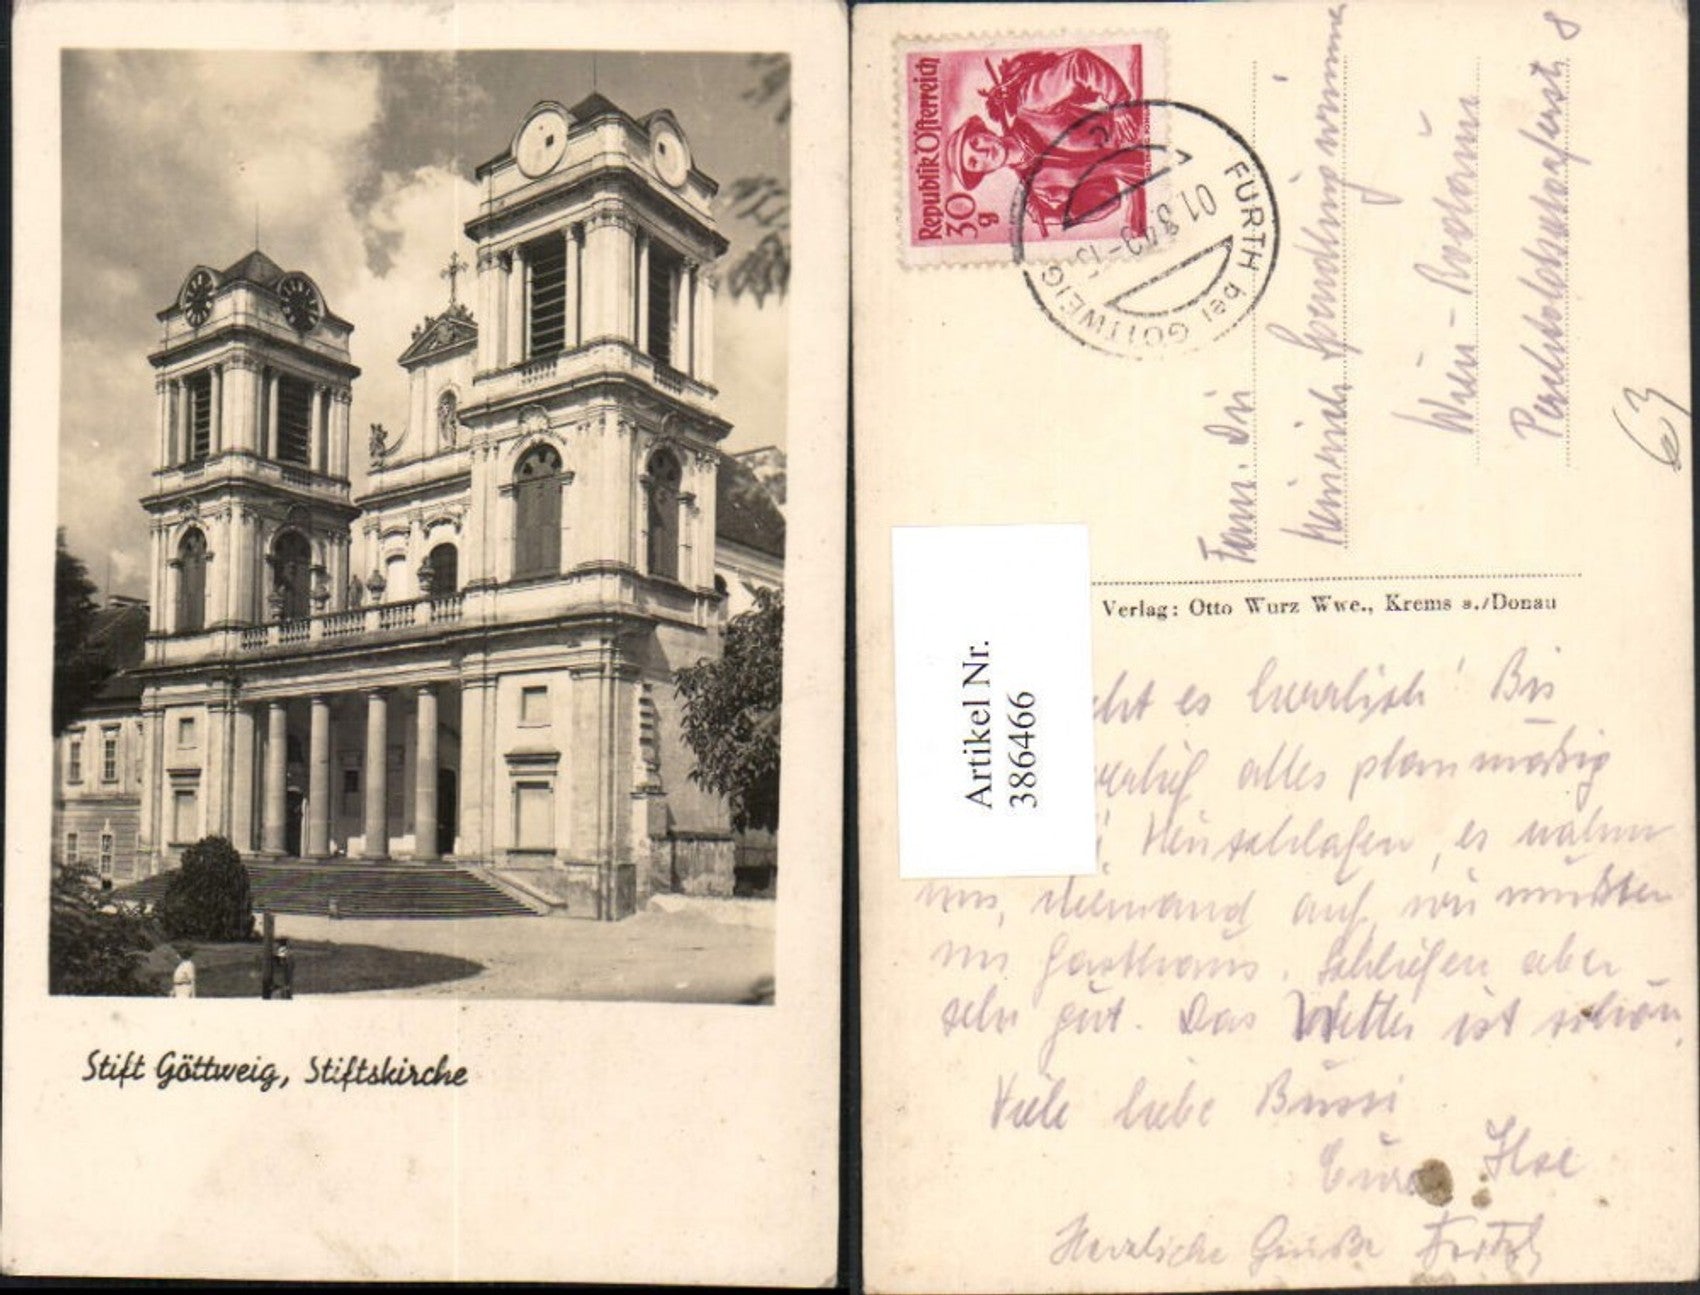 Stift Göttweig, Stiftskirche
Republik Österreich
30
g
FURTH bei GÖTTWEIG
01.8.49-15
Fam. Dir.
Heinrich
Wien - Rodaun
8
63
Verlag: Otto Wurz Wwe., Krems a./Donau
Artikel Nr.
386466
es herrlich! Bis
alles planmäßig
Heuschlafen, es nahm
uns niemand auf, wir mußten
ins Gasthaus. Schliefen aber
sehr gut. Das Wetter ist schön.
Viele liebe Bussi
Eure Ilse
Herzliche Grüße